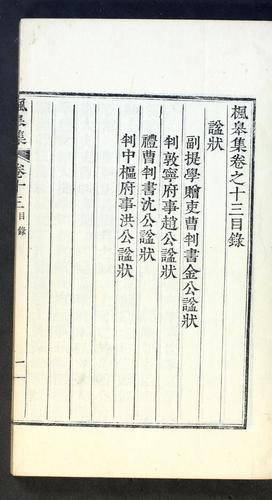 楓皋集卷之十三目錄
諡狀
副提學贈吏曹判書金公諡狀
判敦寧府事趙公諡狀
禮曹判書沈公諡狀
判中樞府事洪公諡狀
楓皋集
卷十三目錄
一